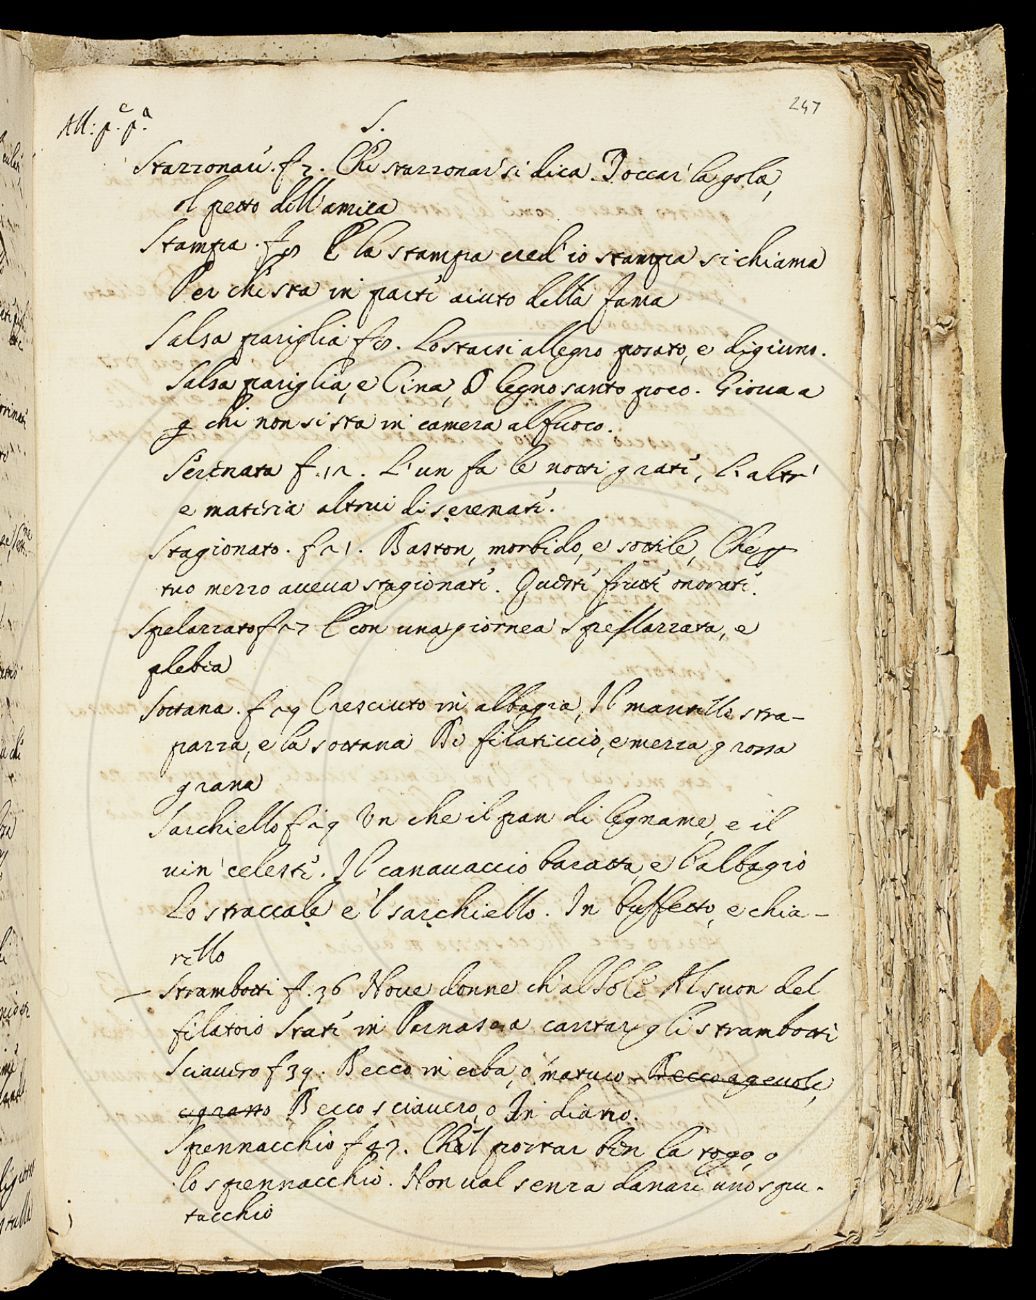 247
All: p.e p.a
S.
Stazzonare. f 7. Che stazzonar si dica. Toccar la gola,
Il petto dell'amica
Stampa. f 8 E la stampa cred'io stampa si chiama
Per che sta in parte aiuto della fama
Salsa pariglia f 8. Lo starsi allegro posato, e digiuno.
Salsa pariglia, e Cina, O legno santo poco. Gioua a
chi non si sta in camera al fuoco.
Serenata f. 12. L'un fa le notti grate, l'altr'
e materia altrui di serenate.
Stagionato. f 21. Baston, morbido, e sottile, Che
tuo mezzo aueua stagionati. Questi frutti onorati.
Spelazzato f 27 E con una giornea Spellazzata, e
plebea
Sottana. f 29 Cresciuto in albagia, Il mantello stra-
pazza, e la sottana Di filaticcio, e mezza grossa
grana
Sarchiello f 29 Un che il pan di legname, e il
vin celeste. Il canauaccio baratta e l'albagio
Lo straccale e 'l sarchiello. In buffetto, e chia-
rello
— Strambotti f. 36 Noue donne ch'al Sole Al suon del
filatoio State in Parnasa a cantar gli strambotti
Sciauero f 39. Becco in erba, o maturo Becco ageuole,
o grasso Becco sciauero, o In diano.
Spennacchio f 43. Che 'l portar ben la toga, o
lo spennacchio. Non ual senza danari uno spu-
tacchio